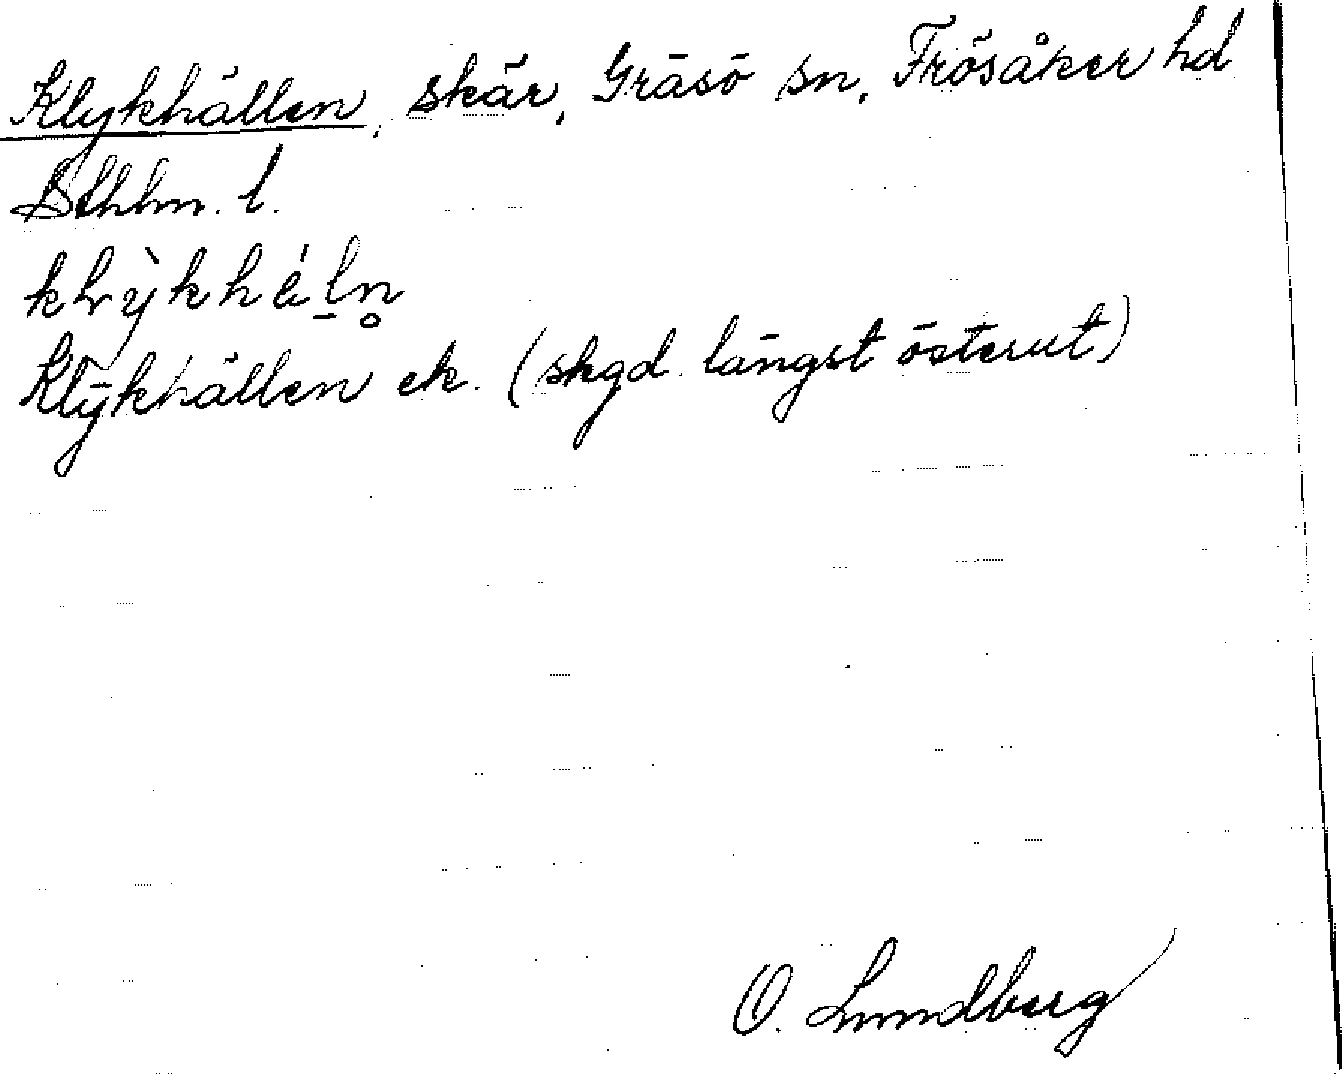 Klykhällen, skär, Gräsö sn, Frösåker hd
Sthlm. l.
Klykhällen ek. (skgd längst österut)
O. Lundberg